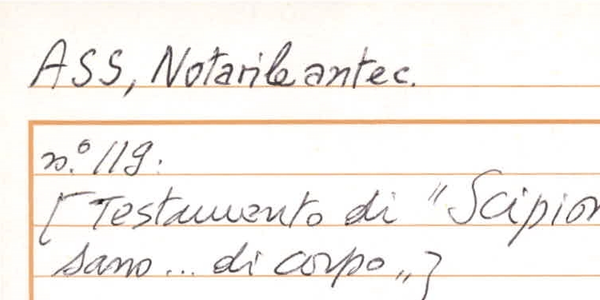 ASS, Notarile antec.
n.º 119.
[Testamento di "Scipion
sano... di corpo„]